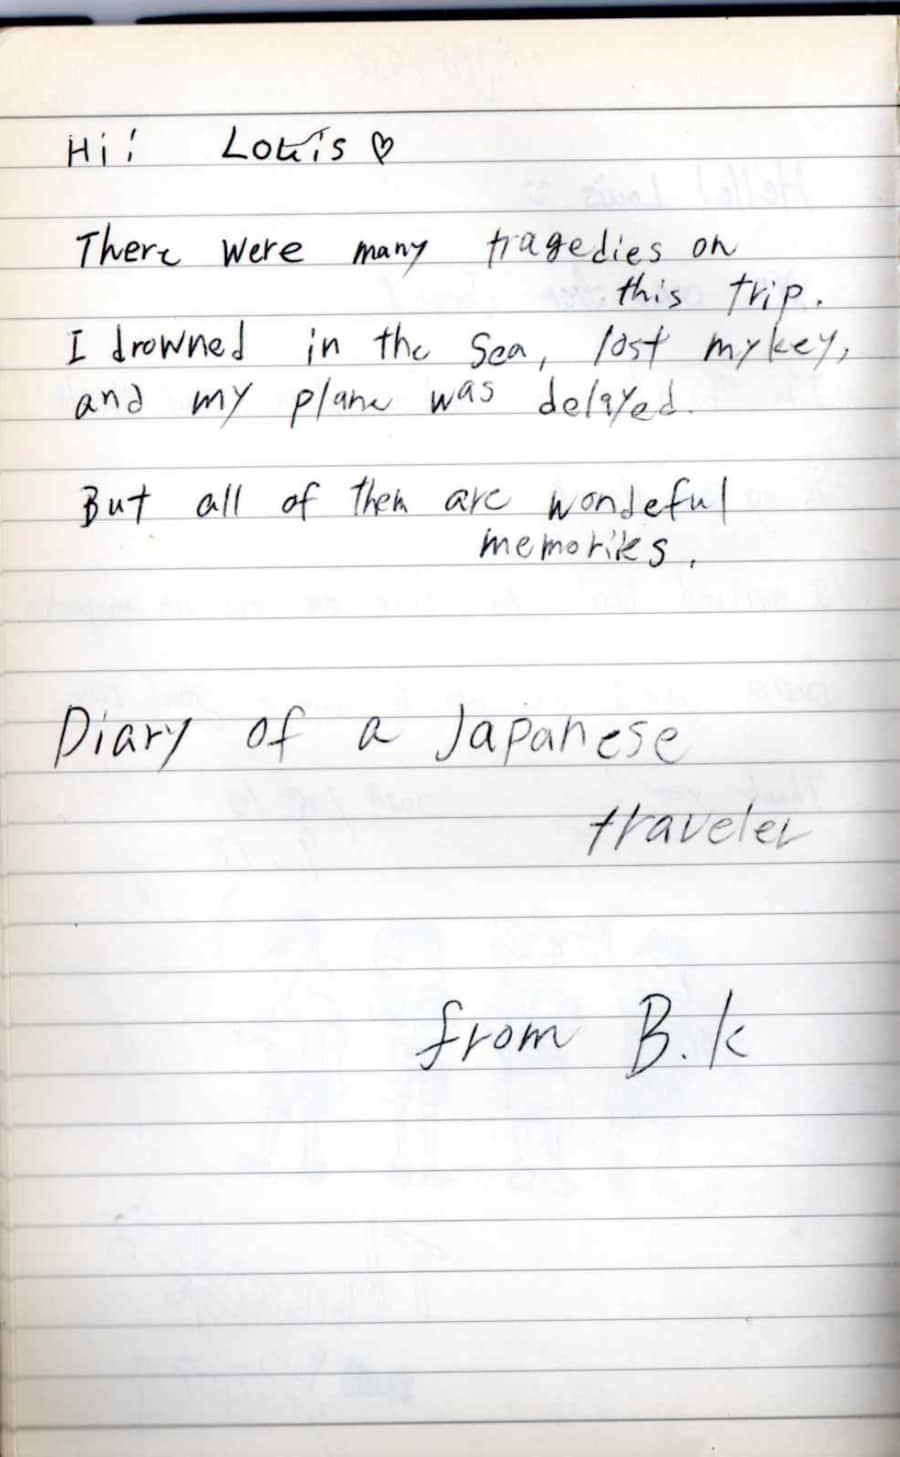 Hi! Louis ♡
There were many tragedies on
this trip.
I drowned in the sea, lost my key,
and my plane was delayed.
But all of them are wondeful
memories.
Diary of a Japanese
traveler
from B.k